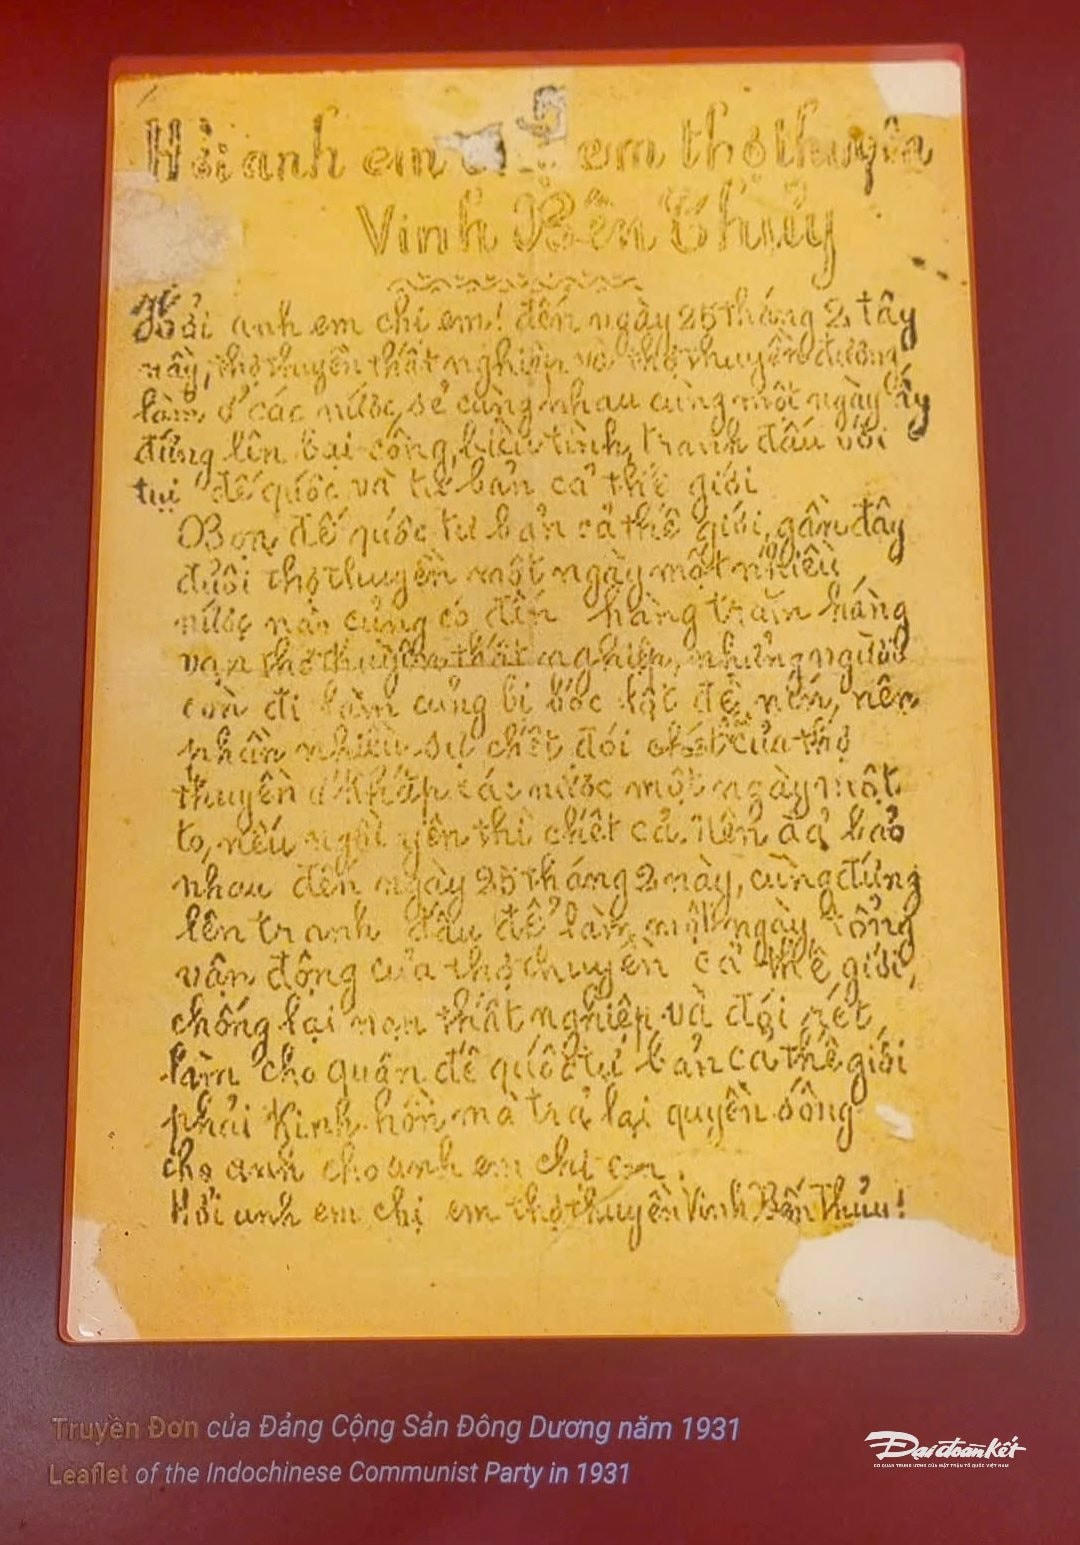 Hỡi anh em chị em thợ thuyền
Vinh Bến Thủy
Hỡi anh em chị em! đến ngày 25 tháng 2 tây
nầy, thợ thuyền thất nghiệp và thợ thuyền đương
làm ở các nước, sẽ cùng nhau cùng một ngày ấy
đứng lên bại công, biểu tình, tranh đấu với
tụi đế quốc và tư bản cả thế giới
Bọn đế quốc tư bản cả thế giới, gần đây
đuổi thợ thuyền một ngày một nhiều
nước nào cũng có đến hàng trăm hàng
vạn thợ thuyền thất nghiệp, những người
còn đi làm cũng bị bóc lột đè nén, nên
phần nhiều sự chết đói của thợ
thuyền ở khắp các nước một ngày một
to, nếu ngồi yên thì chết cả. Nên đã bảo
nhau đến ngày 25 tháng 2 này, cùng đứng
lên tranh đấu để làm một ngày tổng
vận động của thợ thuyền cả thế giới,
chống lại nạn thất nghiệp và đói rét,
làm cho quân đế quốc tư bản cả thế giới
phải kinh hồn mà trả lại quyền sống
cho anh cho anh em chị em.
Hỡi anh em chị em thợ thuyền Vinh Bến Thủy!
Truyền Đơn của Đảng Cộng Sản Đông Dương năm 1931
Leaflet of the Indochinese Communist Party in 1931
Đại đoàn kết
CƠ QUAN TRUNG ƯƠNG CỦA MẶT TRẬN TỔ QUỐC VIỆT NAM